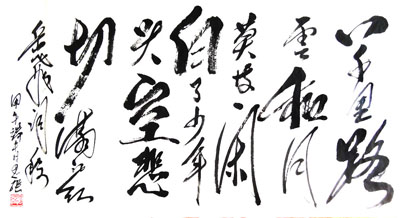 八千里路
雲和月
莫等闲
白了少年
头空悲
切满江红
岳飞词
甲午